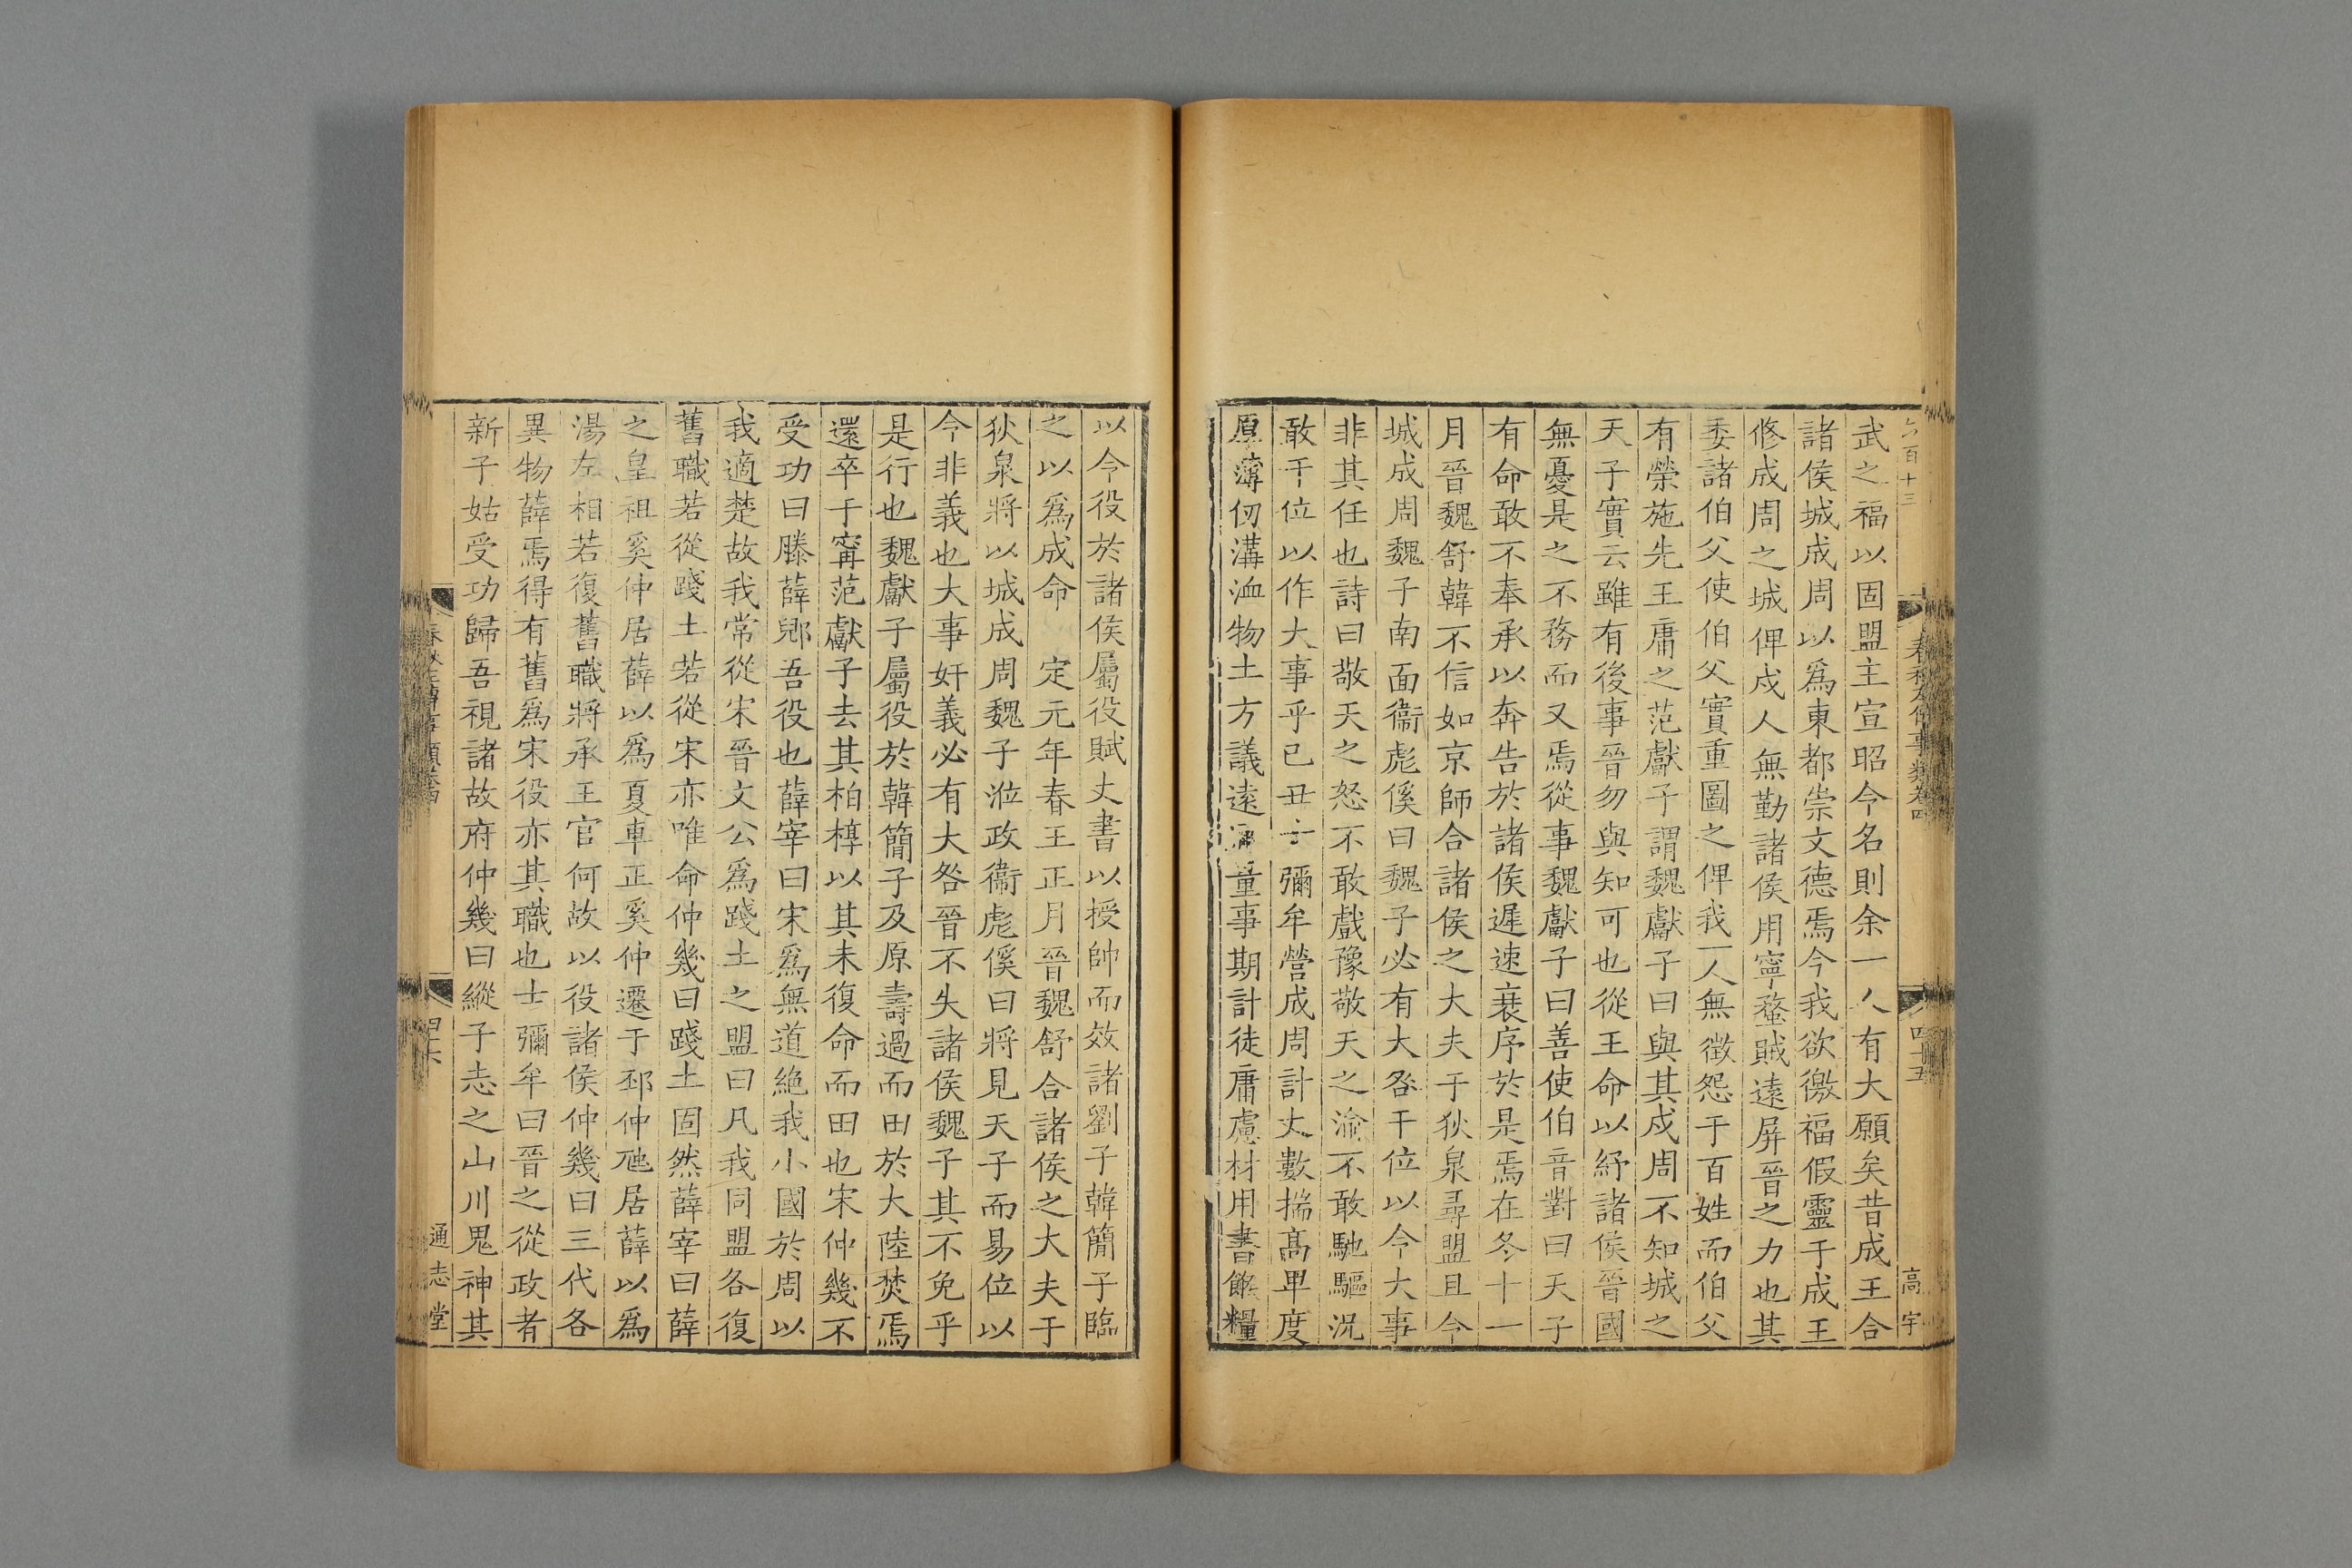 六百十三
春秋左傳事類卷四
四十五
高宇
武之福以固盟主宣昭令名則余一人有大願矣昔成王合
諸侯城成周以爲東都崇文德焉今我欲徼福假靈于成王
修成周之城俾戍人無勤諸侯用寧蝥賊遠屏晉之力也其
委諸伯父使伯父實重圖之俾我一人無徵怨于百姓而伯父
有榮施先王庸之范獻子謂魏獻子曰與其戍周不知城之
天子實云雖有後事晉勿與知可也從王命以紓諸侯晉國
無憂是之不務而又焉從事魏獻子曰善使伯音對曰天子
有命敢不奉承以奔告於諸侯遲速衰序於是焉在冬十一
月晉魏舒韓不信如京師合諸侯之大夫于狄泉尋盟且令
城成周魏子南面衞彪傒曰魏子必有大咎干位以令大事
非其任也詩曰敬天之怒不敢戲豫敬天之渝不敢馳驅況
敢干位以作大事乎己丑士彌牟營成周計丈數揣髙卑度
厚薄仞溝洫物土方議遠量事期計徒庸慮材用書餱糧
以令役於諸侯屬役賦丈書以授帥而效諸劉子韓簡子臨
之以爲成命　定元年春王正月晉魏舒合諸侯之大夫于
狄泉將以城成周魏子涖政衞彪傒曰將見天子而易位以
令非義也大事奸義必有大咎晉不失諸侯魏子其不免乎
是行也魏獻子屬役於韓簡子及原壽過而田於大陸焚焉
還卒于甯范獻子去其柏椁以其未復命而田也宋仲幾不
受功曰滕薛郳吾役也薛宰曰宋爲無道絶我小國於周以
我適楚故我常從宋晉文公爲踐土之盟曰凡我同盟各復
舊職若從踐土若從宋亦唯命仲幾曰踐土固然薛宰曰薛
之皇祖奚仲居薛以爲夏車正奚仲遷于邳仲虺居薛以爲
湯左相若復舊職將承王官何故以役諸侯仲幾曰三代各
異物薛焉得有舊爲宋役亦其職也士彌牟曰晉之從政者
新子姑受功歸吾視諸故府仲幾曰縱子忘之山川鬼神其
春秋左傳事類卷四
四十六
通志堂